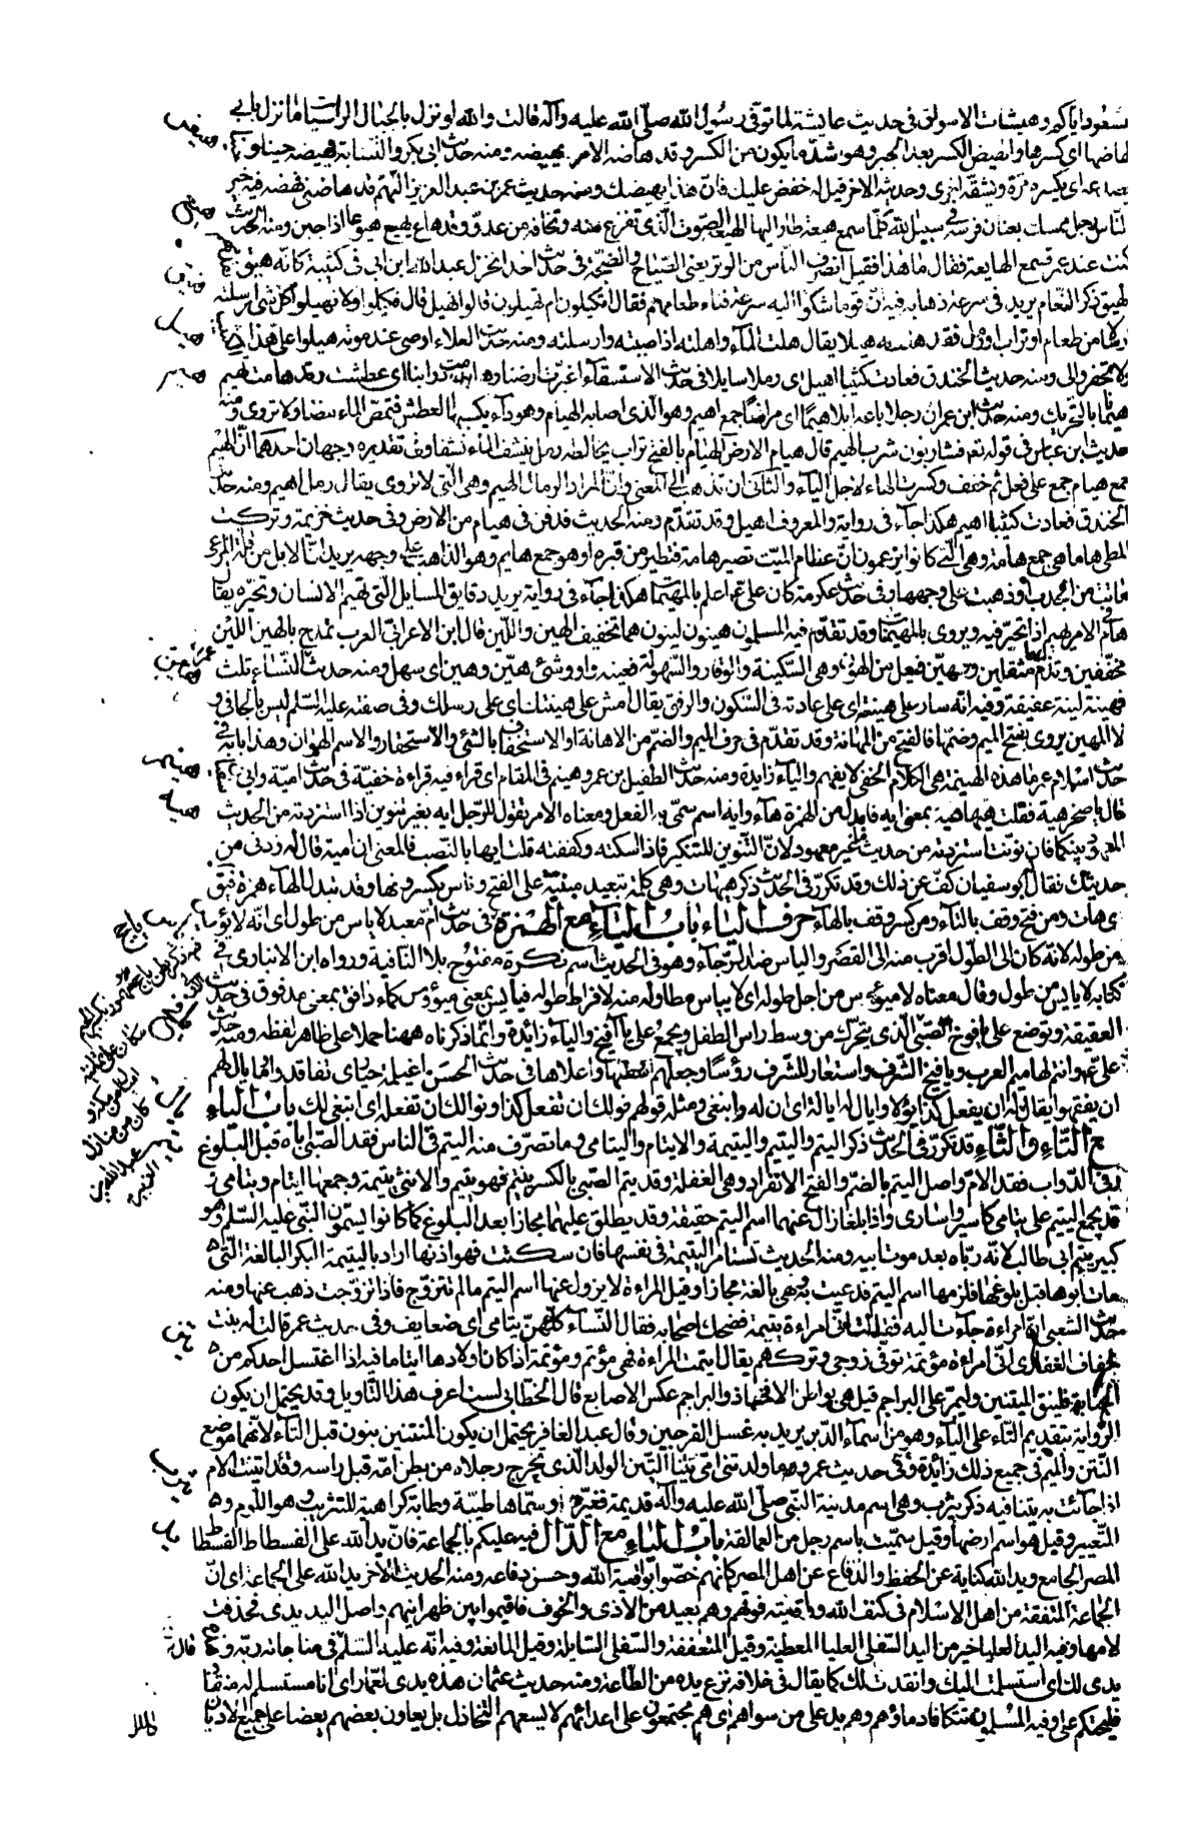 مسعود اياكم وهيشات الاسواق فى حديث عايشة لما توفى رسول الله صلى الله عليه وآله قالت والله لو نزل بالجبال الراسيات ما نزل بابى
لهاضها اى كسرها والهيض الكسر بعد الجبر وهو اشد ما يكون من الكسر وقد هاضه الامر يهيضه ومنه حديث ابى بكر والنسابة يهيضه حينا و
يصدعه اى يكسره مرة ويشقه اخرى وحديثه الاخر قيل له خفض عليك فان هذا يهيضك ومنه حديث عمر بن عبد العزيز اللهم قد هاضنى فهضه فيه خير
الناس رجل ممسك بعنان فرسه فى سبيل الله كلما سمع هيعة طار اليها الهيعة الصوت الذى تفزع منه وتخافه من عدو وقد هاع يهيع هيوعا اذا جبن ومنه الحديث
كنت عند عمر فسمع الهايعة فقال ما هذا فقيل انصرف الناس من الوتر يعنى الصياح والضجة فى حديث احد انخزل عبد الله ابن ابى فى كتيبة كانه هيق
الهيق ذكر النعام يريد فى سرعة ذهابه فيه ان قوما شكوا اليه سرعة فناء طعامهم فقال اتكيلون ام تهيلون قالوا نهيل قال فكيلوا ولا تهيلوا كل شىء ارسلته
ارسالا من طعام او تراب او رمل فقد هلته هيلا يقال هلت الماء واهلته اذا صببته وارسلته ومنه حديث العلاء اوصى عند موته هيلوا على هذا
ولا تحفروا لى ومنه حديث الخندق فعادت كثيبا اهيل اى رملا سايلا فى حديث الاستسقاء اغبرت ارضنا وهامت دوابنا اى عطشت وقد هامت تهيم
هيما بالتحريك ومنه حديث ابن عمر ان رجلا باعه ابلا هيما اى مراضا جمع اهيم وهو الذى اصابه الهيام وهو داء يكسبها العطش فتمص الماء مصا ولا تروى ومنه
حديث ابن عباس فى قوله تع فشاربون شرب الهيم قال هيام الارض الهيام بالفتح تراب يخالطه رمل ينشف الماء نشفا وفى تقديره وجهان احدهما ان الهيم
جمع هيام جمع على فعل ثم خفف وكسرت الهاء لاجل الياء والثانى ان تذهب الى المعنى وان المراد الرمال الهيم وهى التى لا تروى يقال رمل اهيم ومنه حديث
الخندق فعادت كثيبا اهيم هكذا جاء فى رواية والمعروف اهيل وقد تقدم ومنه الحديث فدفن فى هيام من الارض وفى حديث خزيمة وتركت
المطى هاما هى جمع هامة وهى التى كانوا يزعمون ان عظام الميت تصير هامة فتطير من قبره او هو جمع هايم وهو الذاهب على وجهه يريد ان الابل من قلة المرعى
ماتت من الجدب او ذهبت على وجهها وفى حديث عكرمة كان على ع اعلم بالمهيمات هكذا جاء فى رواية يريد دقايق المسايل التى تهيم الانسان وتحيره يقال
هام فى الامر يهيم اذا تحير فيه ويروى بالمهيمنات وقد تقدم فيه المسلمون هينون لينون هما تخفيف الهين واللين قال ابن الاعرابى العرب تمدح بالهين اللين
مخففين وتذم بهما مثقلين وهين فيعل من الهون وهى السكينة والوقار والسهولة فعينه واو وشىء هين وهين اى سهل ومنه حديث النساء ثلث
فهينة لينة عفيفة وفيه انه سار على هينته اى على عادته فى السكون والرفق يقال امش على هينتك اى على رسلك وفى صفته عليه السلم ليس بالجافى و
لا المهين يروى بفتح الميم وضمها فالفتح من المهانة وقد تقدم فى حرف الميم والضم من الاهانة او الاستخفاف بالشىء والاستحقار والاسم الهوان وهذا بابه فى
حديث اسلام عمر ما هذه الهينمة هى الكلام الخفى لا يفهم والياء زايدة ومنه حديث الطفيل بن عمرو هينم فى المقام اى قرأ فيه قراءة خفية فى حديث امية وابى
قال يا صخر هيه فقلت هيها هيه بمعنى ايه فابدل من الهمزة هاء وايه اسم سمى به الفعل ومعناه الامر تقول للرجل ايه بغير تنوين اذا استزدته من الحديث
المعهود بينكما فان نونت استزدته من حديث ما غير معهود لان التنوين للتنكير فاذا سكته وكففته قلت ايها بالنصب فالمعنى ان امية قال له زدنى من
حديثك فقال ابو سفيان كف عن ذلك وقد تكرر فى الحديث ذكر هيهات وهى كلمة تبعيد مبنية على الفتح وناس يكسرونها وقد تبدل الهاء همزة فيق
ايهات ومن فتح وقف بالتاء ومن كسر وقف بالهاء حرف الياء باب الياء مع الهمزة فى حديث ام معبد لا ياس من طول اى انه لا يؤس
من طوله لانه كان الى الطول اقرب منه الى القصر والياس ضد الرجاء وهو فى الحديث اسم نكرة مفتوح بلا النافية ورواه ابن الانبارى فى
كتابه لا يايس من طول وقال معناه لا ميؤس من اجل طوله اى لا يياس مطاوله منه لافراط طوله فيايس بمعنى ميؤوس كماء دافق بمعنى مدفوق فى حديث
العقيقة وتوضع على يافوخ الصبى الذى يتحرك من وسط راس الطفل ويجمع على يافيخ والياء زائدة وانما ذكرناه ههنا حملا على ظاهر لفظه ومنه حديث
على ع وانتم لهاميم العرب ويافيخ الشرف استعار للشرف رؤسا وجعلهم وسطها واعلاها فى حديث الحسن اغيلمة حيارى تفاقدوا ما يال لهم
ان يفقهوا يقال يال له ان يفعل كذا يؤلا وايال له ايالة اى ان له وانبغى ومثله قولهم نولك ان تفعل كذا ونوالك ان تفعله اى انبغى لك باب الياء
مع التاء والثاء قد تكرر فى الحديث ذكر اليتم واليتيم واليتيمة والايتام واليتامى وما تصرف منه اليتم فى الناس فقد الصبى اباه قبل البلوغ
وفى الدواب فقد الام واصل اليتم بالضم والفتح الانفراد وهى الغفلة وقد يتم الصبى بالكسر ييتم فهو يتيم والانثى يتيمة وجمعها ايتام ويتامى و
قد يجمع اليتيم على يتامى كاسير واسارى واذا بلغا زال عنهما اسم اليتم حقيقة وقد يطلق عليهما مجازا بعد البلوغ كما كانوا يسمون النبى عليه السلم وهو
كبير يتيم ابى طالب لانه رباه بعد موت ابيه ومنه الحديث تستامر اليتيمة فى نفسها فان سكتت فهو اذنها اراد باليتيمة البكر البالغة التى
مات ابوها قبل بلوغها فلزمها اسم اليتم فدعيت به وهى بالغة مجازا وقيل المراءة لا يزول عنها اسم اليتم ما لم تتزوج فاذا تزوجت ذهب عنها ومنه
حديث الشعبى ان امراءة جاءت اليه فقالت انى امراءة يتيمة فضحك اصحابه فقال النساء كلهن يتامى اى ضعايف وفى حديث عمر قالت له بنت
خفاف الغفارى انى امراءة مؤتمة توفى زوجى وتركهم يقال ايتمت المراءة فهى مؤتم ومؤتمة اذا كان اولادها ايتاما فيه اذا اغتسل احدكم من
الجنابة فلينق الميتنين وليمر على البراجم قيل هى بواطن الافخاذ والبراجم عكس الاصابع قال الخطابى لست اعرف هذا التاويل وقد يحتمل ان يكون
الرواية بتقديم التاء على الياء وهو من اسماء الدبر يريد به غسل الفرجين وقال عبد الغافر يحتمل ان يكون المنتنين بنون قبل التاء لانهما موضع
النتن والميم فى جميع ذلك زائدة وفى حديث عمرو ما ولدتنى امى يتنا اليتن الولد الذى تخرج رجلاه من بطن امه قبل راسه وقد ايتنت الام
اذا جائت به يتنا فيه ذكر يثرب وهى اسم مدينة النبى صلى الله عليه وآله قديمة فغيرها وسماها طيبة وطابة كراهية للتثريب وهو اللوم و
التعيير وقيل هو اسم ارضها وقيل سميت باسم رجل من العمالقة باب الياء مع الدال فيه عليكم بالجماعة فان يد الله على الفسطاط الفسطاط
المصر الجامع ويد الله كناية عن الحفظ والدفاع عن اهل المصر كانهم خصوا بواقية الله وحسن دفاعه ومنه الحديث الاخر يد الله على الجماعة اى ان
الجماعة المتفقة من اهل الاسلام فى كنف الله وواقيته فوقهم وهم بعيد من الاذى والخوف فاقيموا بين ظهرانيهم واصل اليد يدى فحذفت
لامها وفيه اليد العليا خير من اليد السفلى العليا المعطية وقيل المتعففة والسفلى السايلة وقيل المانعة وفيه انه عليه السلم فى مناجاته ربه و
يدى لك اى استسلمت اليك وانقدت لك كما يقال فى خلافه نزع يده من الطاعة ومنه حديث عثمان هذه يدى لعمار اى انا مستسلم له منقاد
فليحتكم على وفيه المسلمون تتكافا دماؤهم وهم يد على من سواهم اى هم مجتمعون على اعدائهم لا يسعهم التخاذل بل يعاون بعضهم بعضا على جميع الاديان
هيض
هيع
هيق
هيل
هيم
هينم
هيه
يتم
يتن
يثرب
يد